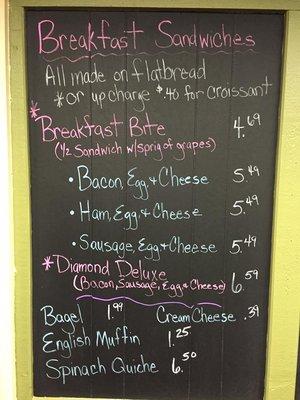 Breakfast Sandwiches
All made on flatbread
*or upcharge $.40 for croissant
* Breakfast Bite 4.69
(1/2 Sandwich w/sprig of grapes)
• Bacon, Egg, + Cheese 5.49
• Ham, Egg, + Cheese 5.49
• Sausage, Egg, + Cheese 5.49
* Diamond Deluxe
(Bacon, Sausage, Egg, + Cheese) 6.59
Bagel 1.99 Cream Cheese .39
English Muffin 1.25
Spinach Quiche 6.50